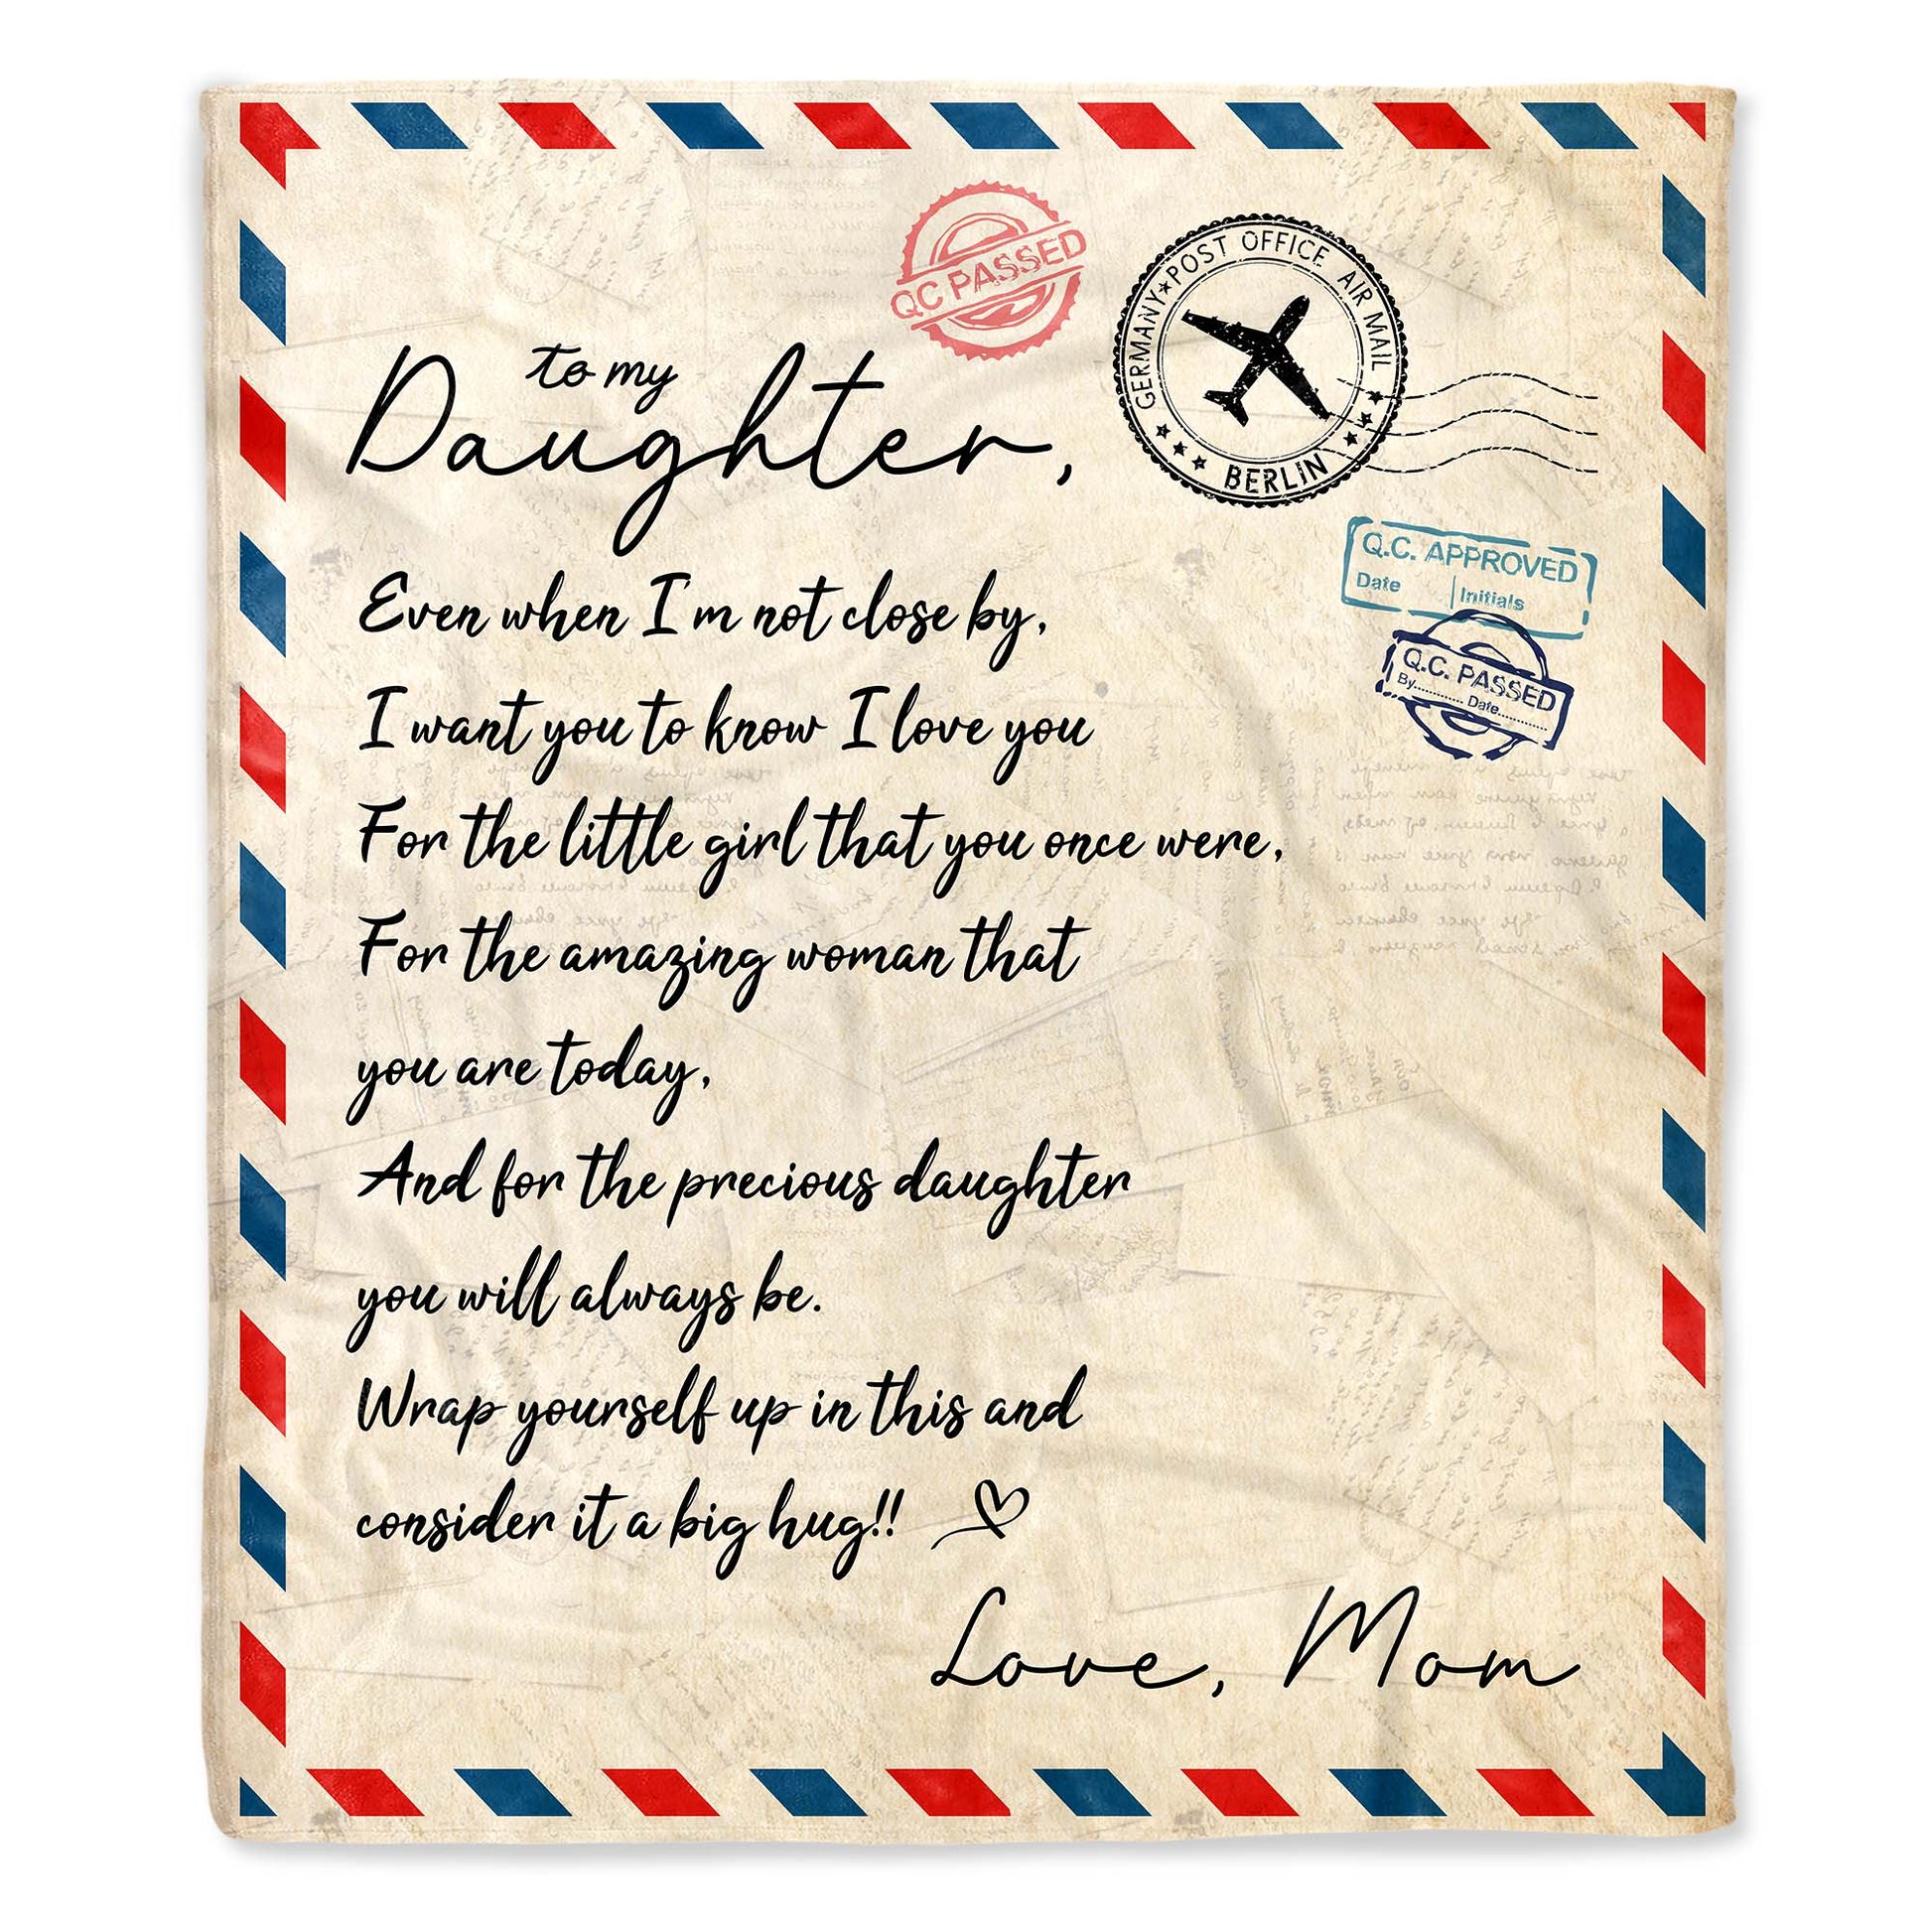 QC PASSED
GERMANY★POST OFFICE AIR MAIL
BERLIN
to my
Daughter,
Q.C. APPROVED
Date Initials
Q.C. PASSED
By............ Date............
Even when I'm not close by,
I want you to know I love you
For the little girl that you once were,
For the amazing woman that
you are today,
And for the precious daughter
you will always be.
Wrap yourself up in this and
consider it a big hug!!
Love, Mom